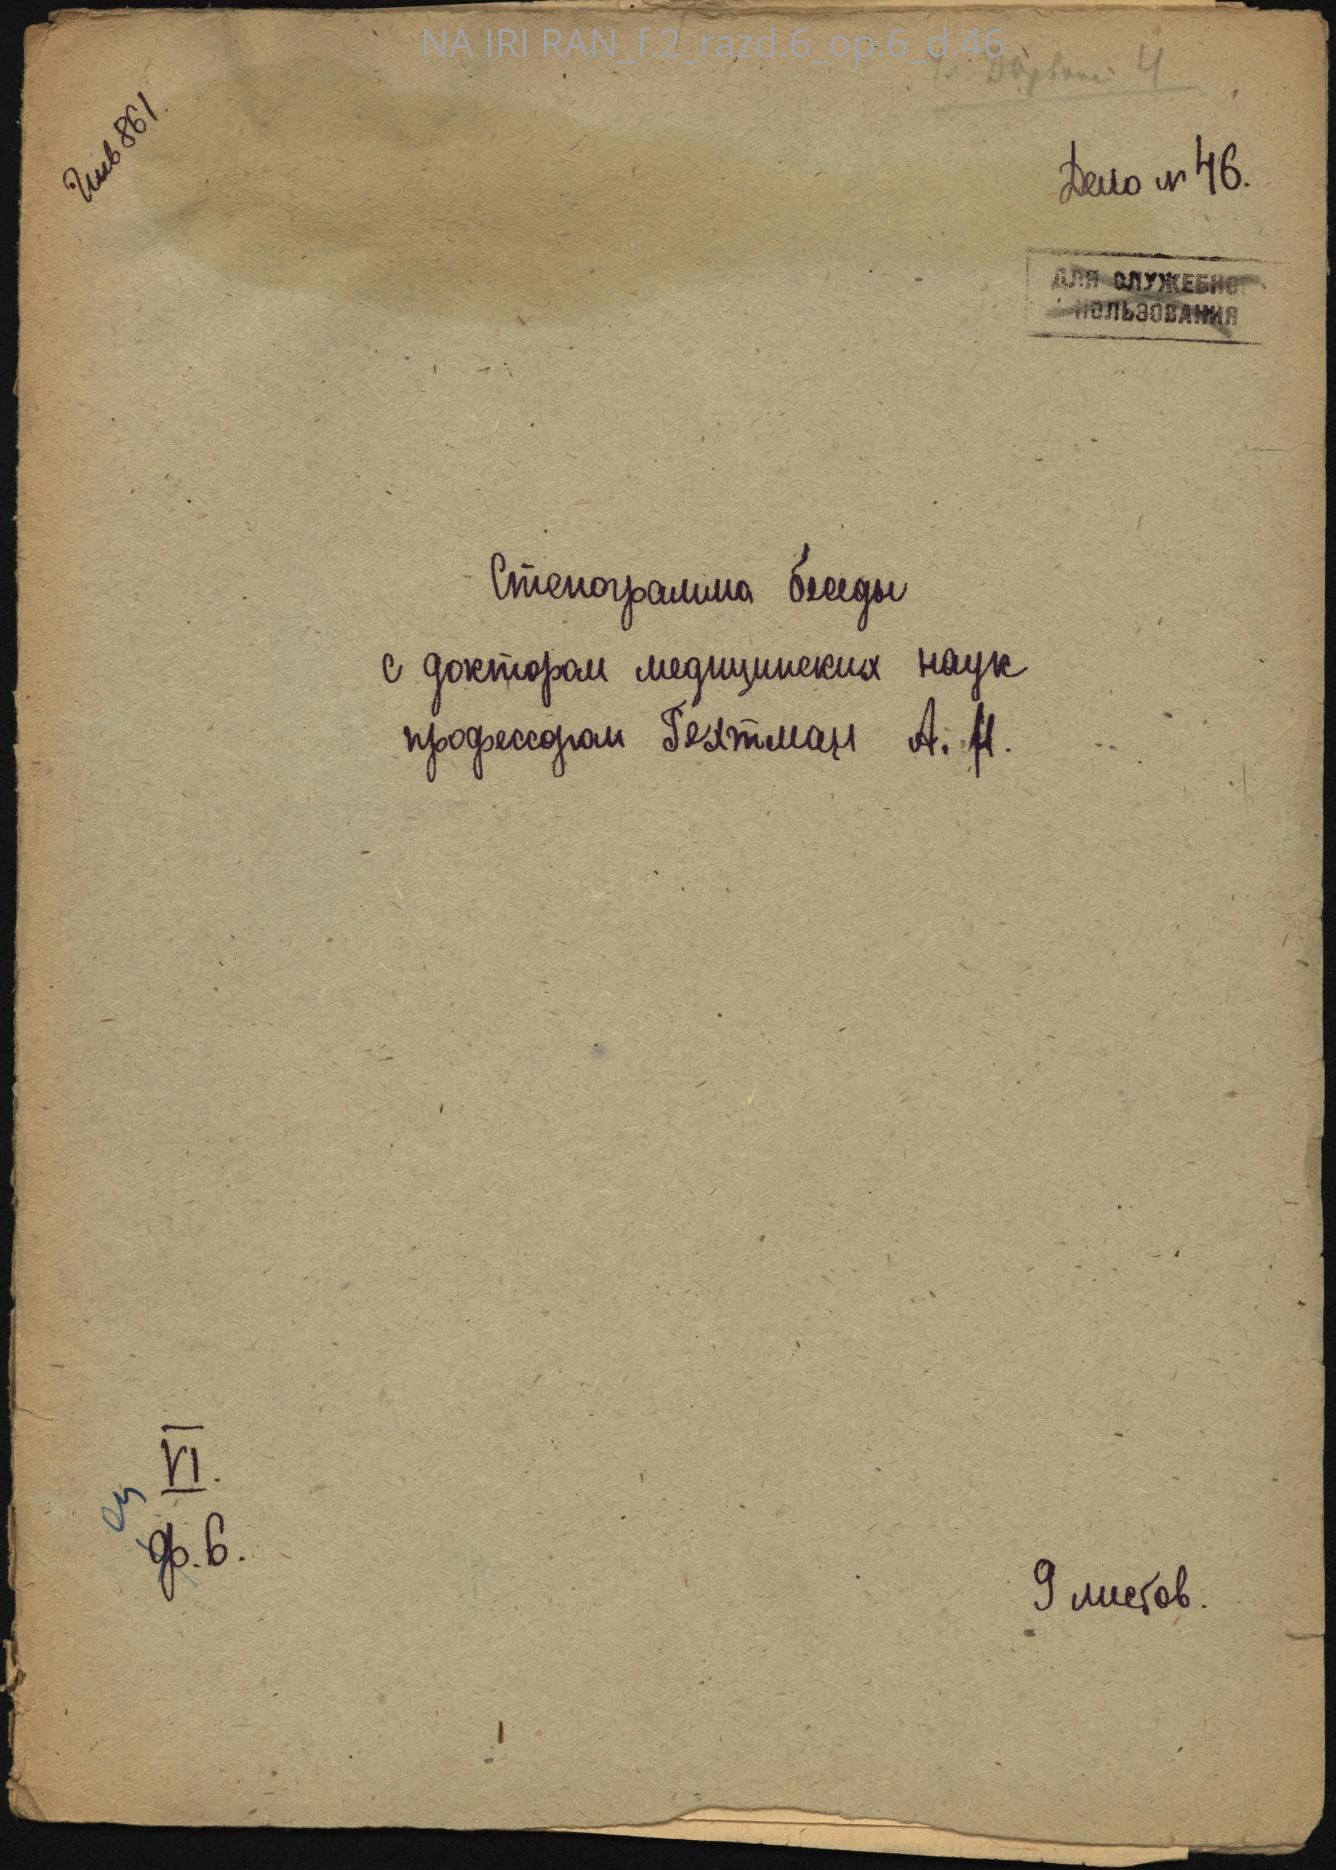 NA IRI RAN_f.2_razd.6_op.6_d.46
4
Инв 861.
Дело № 46.
ДЛЯ СЛУЖЕБНОГ
ПОЛЬЗОВАНИЯ
Стенограмма беседы
с доктором медицинских наук
профессором Гехтман А. Н.
VI.
ф. 6.
9 листов.